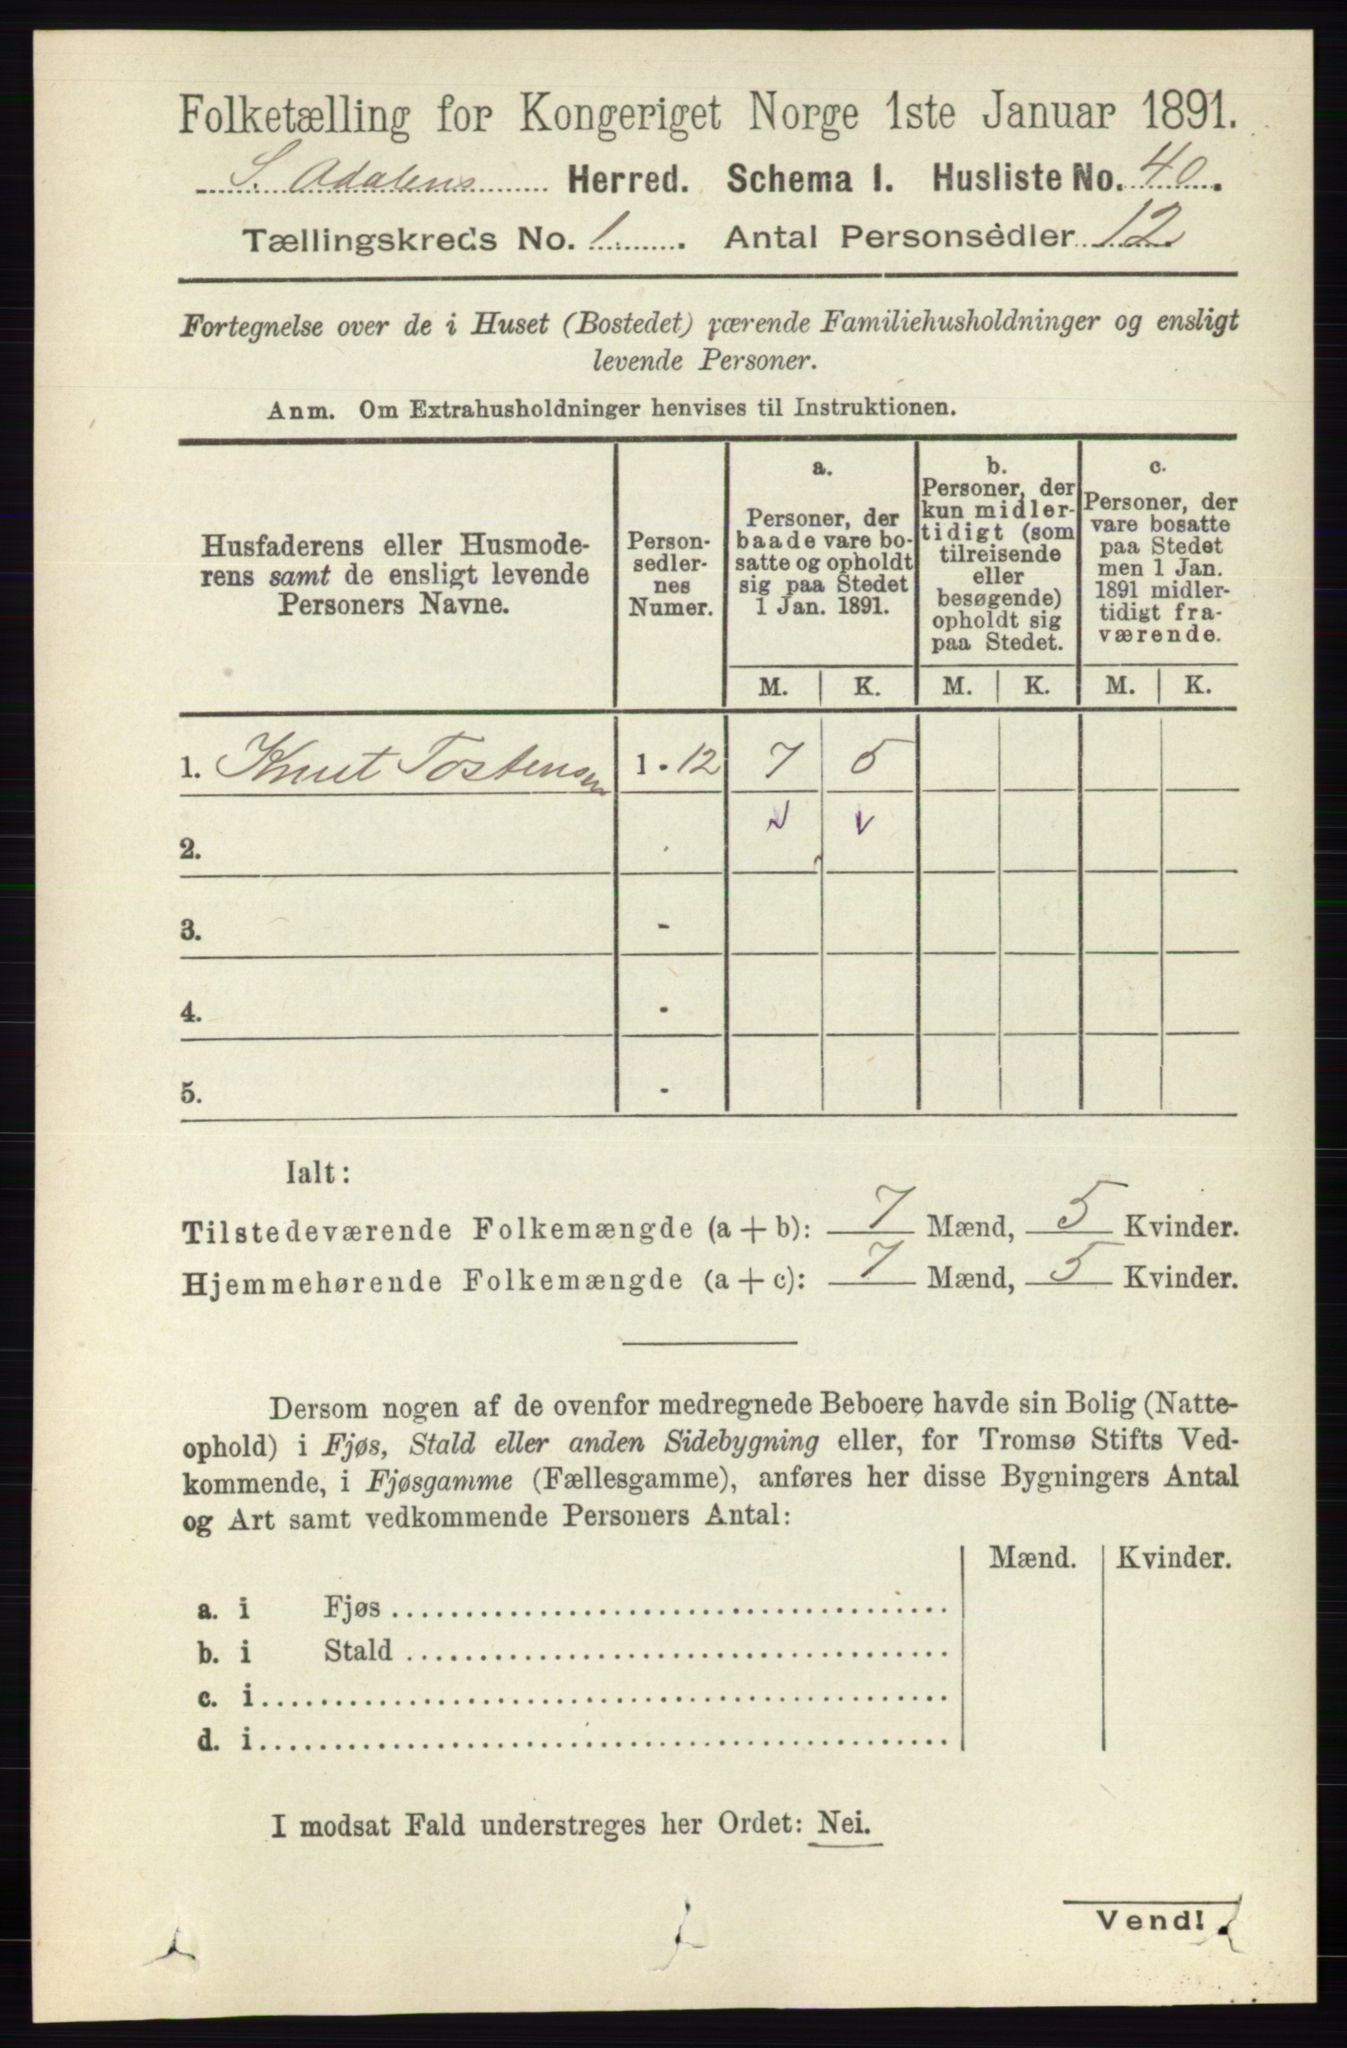 Folketælling for Kongeriget Norge 1ste Januar 1891.
S. Adalens Herred. Schema 1. Husliste No. 40.
Tællingskreds No. 1. Antal Personsedler 12.
Fortegnelse over de i Huset (Bostedet) værende Familiehusholdninger og ensligt
levende Personer.
Anm. Om Extrahusholdninger henvises til Instruktionen.
Husfaderens eller Husmode-
rens samt de ensligt levende
Personers Navne.
Person-
sedler-
nes
Numer.
a.
Personer, der
baade vare bo-
satte og opholdt
sig paa Stedet
1 Jan. 1891.
b.
Personer, der
kun midler-
tidigt (som
tilreisende
eller
besøgende)
opholdt sig
paa Stedet.
c.
Personer, der
vare bosatte
paa Stedet
men 1 Jan.
1891 midler-
tidigt fra-
værende.
M. K. M. K. M. K.
1. Knut Tostensen 1 - 12 7 5
2.
3. -
4. -
5. -
Ialt:
Tilstedeværende Folkemængde (a + b): 7 Mænd, 5 Kvinder.
Hjemmehørende Folkemængde (a + c): 7 Mænd, 5 Kvinder.
Dersom nogen af de ovenfor medregnede Beboere havde sin Bolig (Natte-
ophold) i Fjøs, Stald eller anden Sidebygning eller, for Tromsø Stifts Ved-
kommende, i Fjøsgamme (Fællesgamme), anføres her disse Bygningers Antal
og Art samt vedkommende Personers Antal:
Mænd. Kvinder.
a. i Fjøs
b. i Stald
c. i
d. i
I modsat Fald understreges her Ordet: Nei.
Vend!